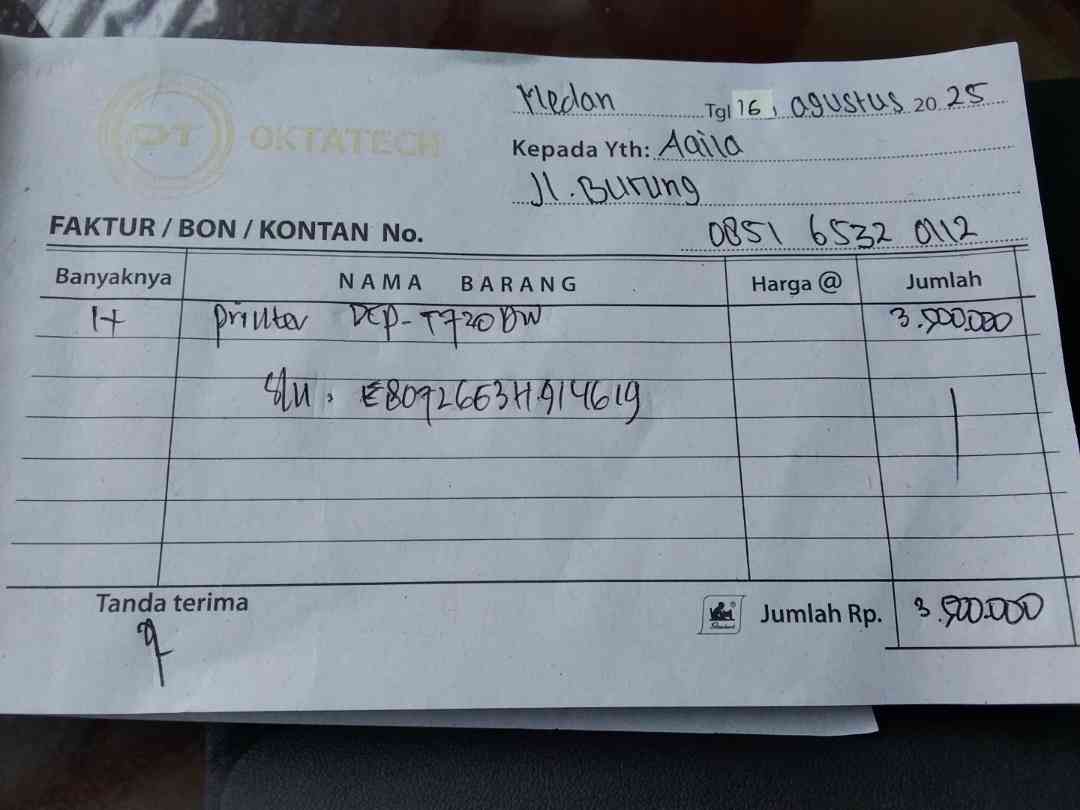 OKTATECH
Medan Tgl 16, agustus 2025
Kepada Yth: Aqila
Jl. Burung
FAKTUR / BON / KONTAN No. 0851 6532 0112
Banyaknya NAMA BARANG Harga @ Jumlah
1 printer DCP-T720DW 3.900.000
S/N: E80726G3H914619
Tanda terima Jumlah Rp. 3.900.000